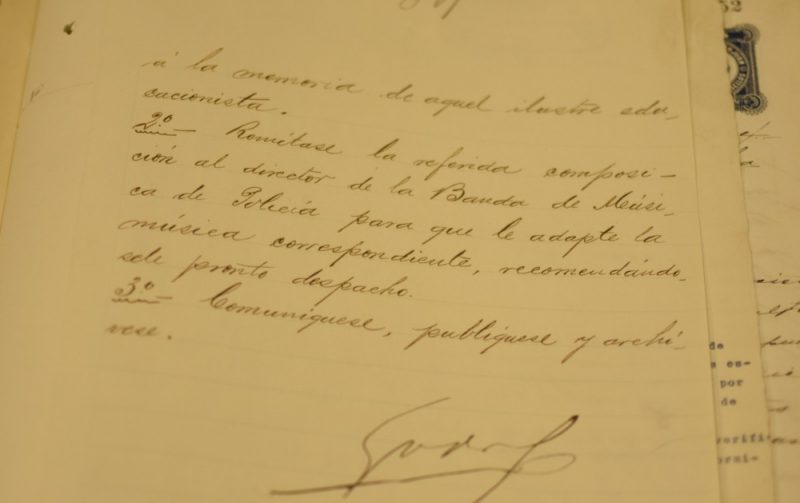 á la memoria de aquel ilustre edu-
cacionista.
2º Remítase la referida composi-
ción al director de la Banda de Músi-
ca de Policía para que le adapte la
música correspondiente, recomendándo-
sele pronto despacho.
3º Comuníquese, publíquese y archí-
vese.
52
de
s es-
por
de
verifi-